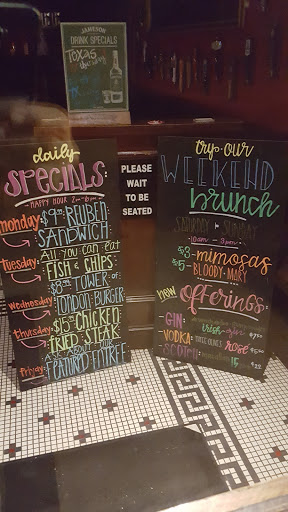 JAMESON
DRINK SPECIALS
daily
SPECIALS:
HAPPY HOUR 2pm-6pm
monday: $9.95 REUBEN
SANDWICH
All you can eat
Tuesday: FISH & CHIPS
$8.95 TOWER OF
Wednesday: LONDON BURGER
Thursday: $15 CHICKEN
FRIED STEAK
ASK ABOUT OUR
Friday: FEATURED ENTREE
PLEASE
WAIT
TO BE
SEATED
try our
WEEKEND
brunch
SATURDAY SUNDAY
10am - 3pm
$3-mimosas
$5-BLOODY-MARY
new Offerings
GIN: irish gin
VODKA: THREE OLIVES rosé
SCOTCH: 15